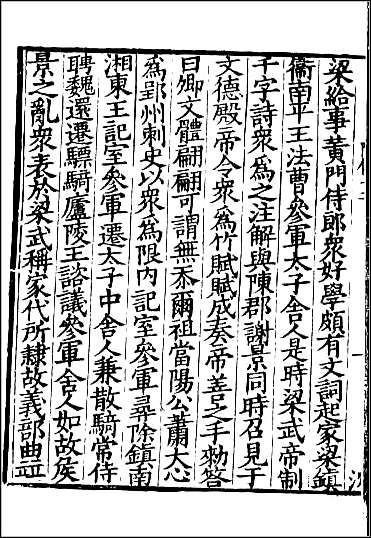 梁給事黃門侍郎衆好學頗有文詞起家梁鎮
衞南平王法曹參軍太子舍人是時梁武帝制
千字詩衆爲之注解與陳郡謝景同時召見于
文德殿帝令衆爲竹賦賦成奏帝善之手勑答
曰卿文體翩翩可謂無忝爾祖當陽公蕭大心
爲郢州刺史以衆爲限內記室參軍尋除鎮南
湘東王記室參軍遷太子中舍人兼散騎常侍
聘魏還遷驃騎廬陵王諮議參軍舍人如故矦
景之亂衆表於梁武稱家代所隷故義部曲並